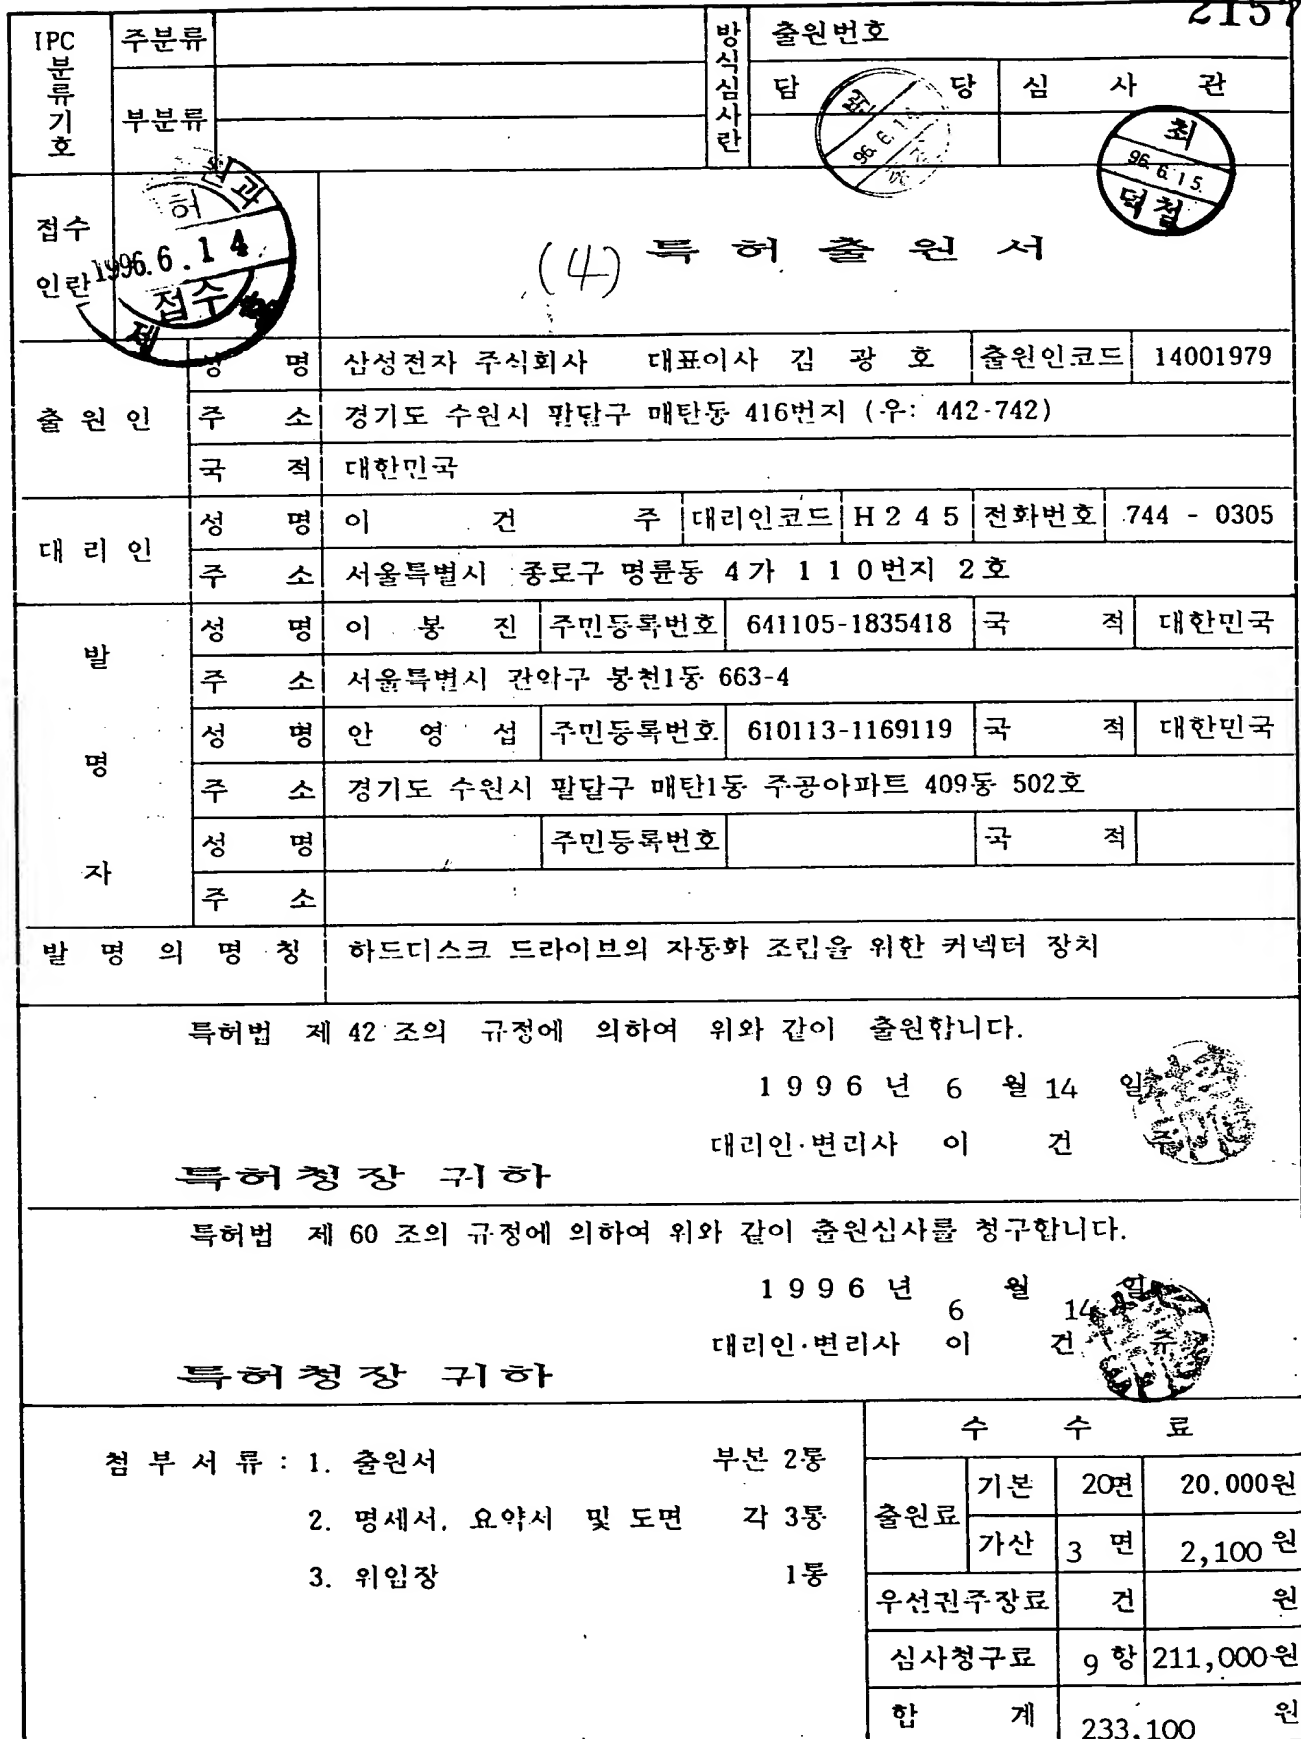 2157
IPC 분류기호 주분류 방식심사란 출원번호
부분류 담 당 심 사 관
96.6.14
최 96.6.15. 덕철
접수인란 1996.6.14 접수
(4) 특 허 출 원 서
출 원 인 성 명 삼성전자 주식회사 대표이사 김 광 호 출원인코드 14001979
주 소 경기도 수원시 팔달구 매탄동 416번지 (우: 442-742)
국 적 대한민국
대 리 인 성 명 이 건 주 대리인코드 H 2 4 5 전화번호 744 - 0305
주 소 서울특별시 종로구 명륜동 4가 1 1 0번지 2호
발 명 자 성 명 이 봉 진 주민등록번호 641105-1835418 국 적 대한민국
주 소 서울특별시 관악구 봉천1동 663-4
성 명 안 영 섭 주민등록번호 610113-1169119 국 적 대한민국
주 소 경기도 수원시 팔달구 매탄1동 주공아파트 409동 502호
성 명 주민등록번호 국 적
주 소
발 명 의 명 칭 하드디스크 드라이브의 자동화 조립을 위한 커넥터 장치
특허법 제 42 조의 규정에 의하여 위와 같이 출원합니다.
1 9 9 6 년 6 월 14 일
대리인·변리사 이 건 주
특허청장 귀하
특허법 제 60 조의 규정에 의하여 위와 같이 출원심사를 청구합니다.
1 9 9 6 년 6 월 14 일
대리인·변리사 이 건 주
특허청장 귀하
첨 부 서 류 : 1. 출원서 부본 2통
2. 명세서, 요약서 및 도면 각 3통
3. 위임장 1통
수 수 료
출원료 기본 20면 20.000원
가산 3 면 2,100 원
우선권주장료 건 원
심사청구료 9 항 211,000원
합 계 233,100 원